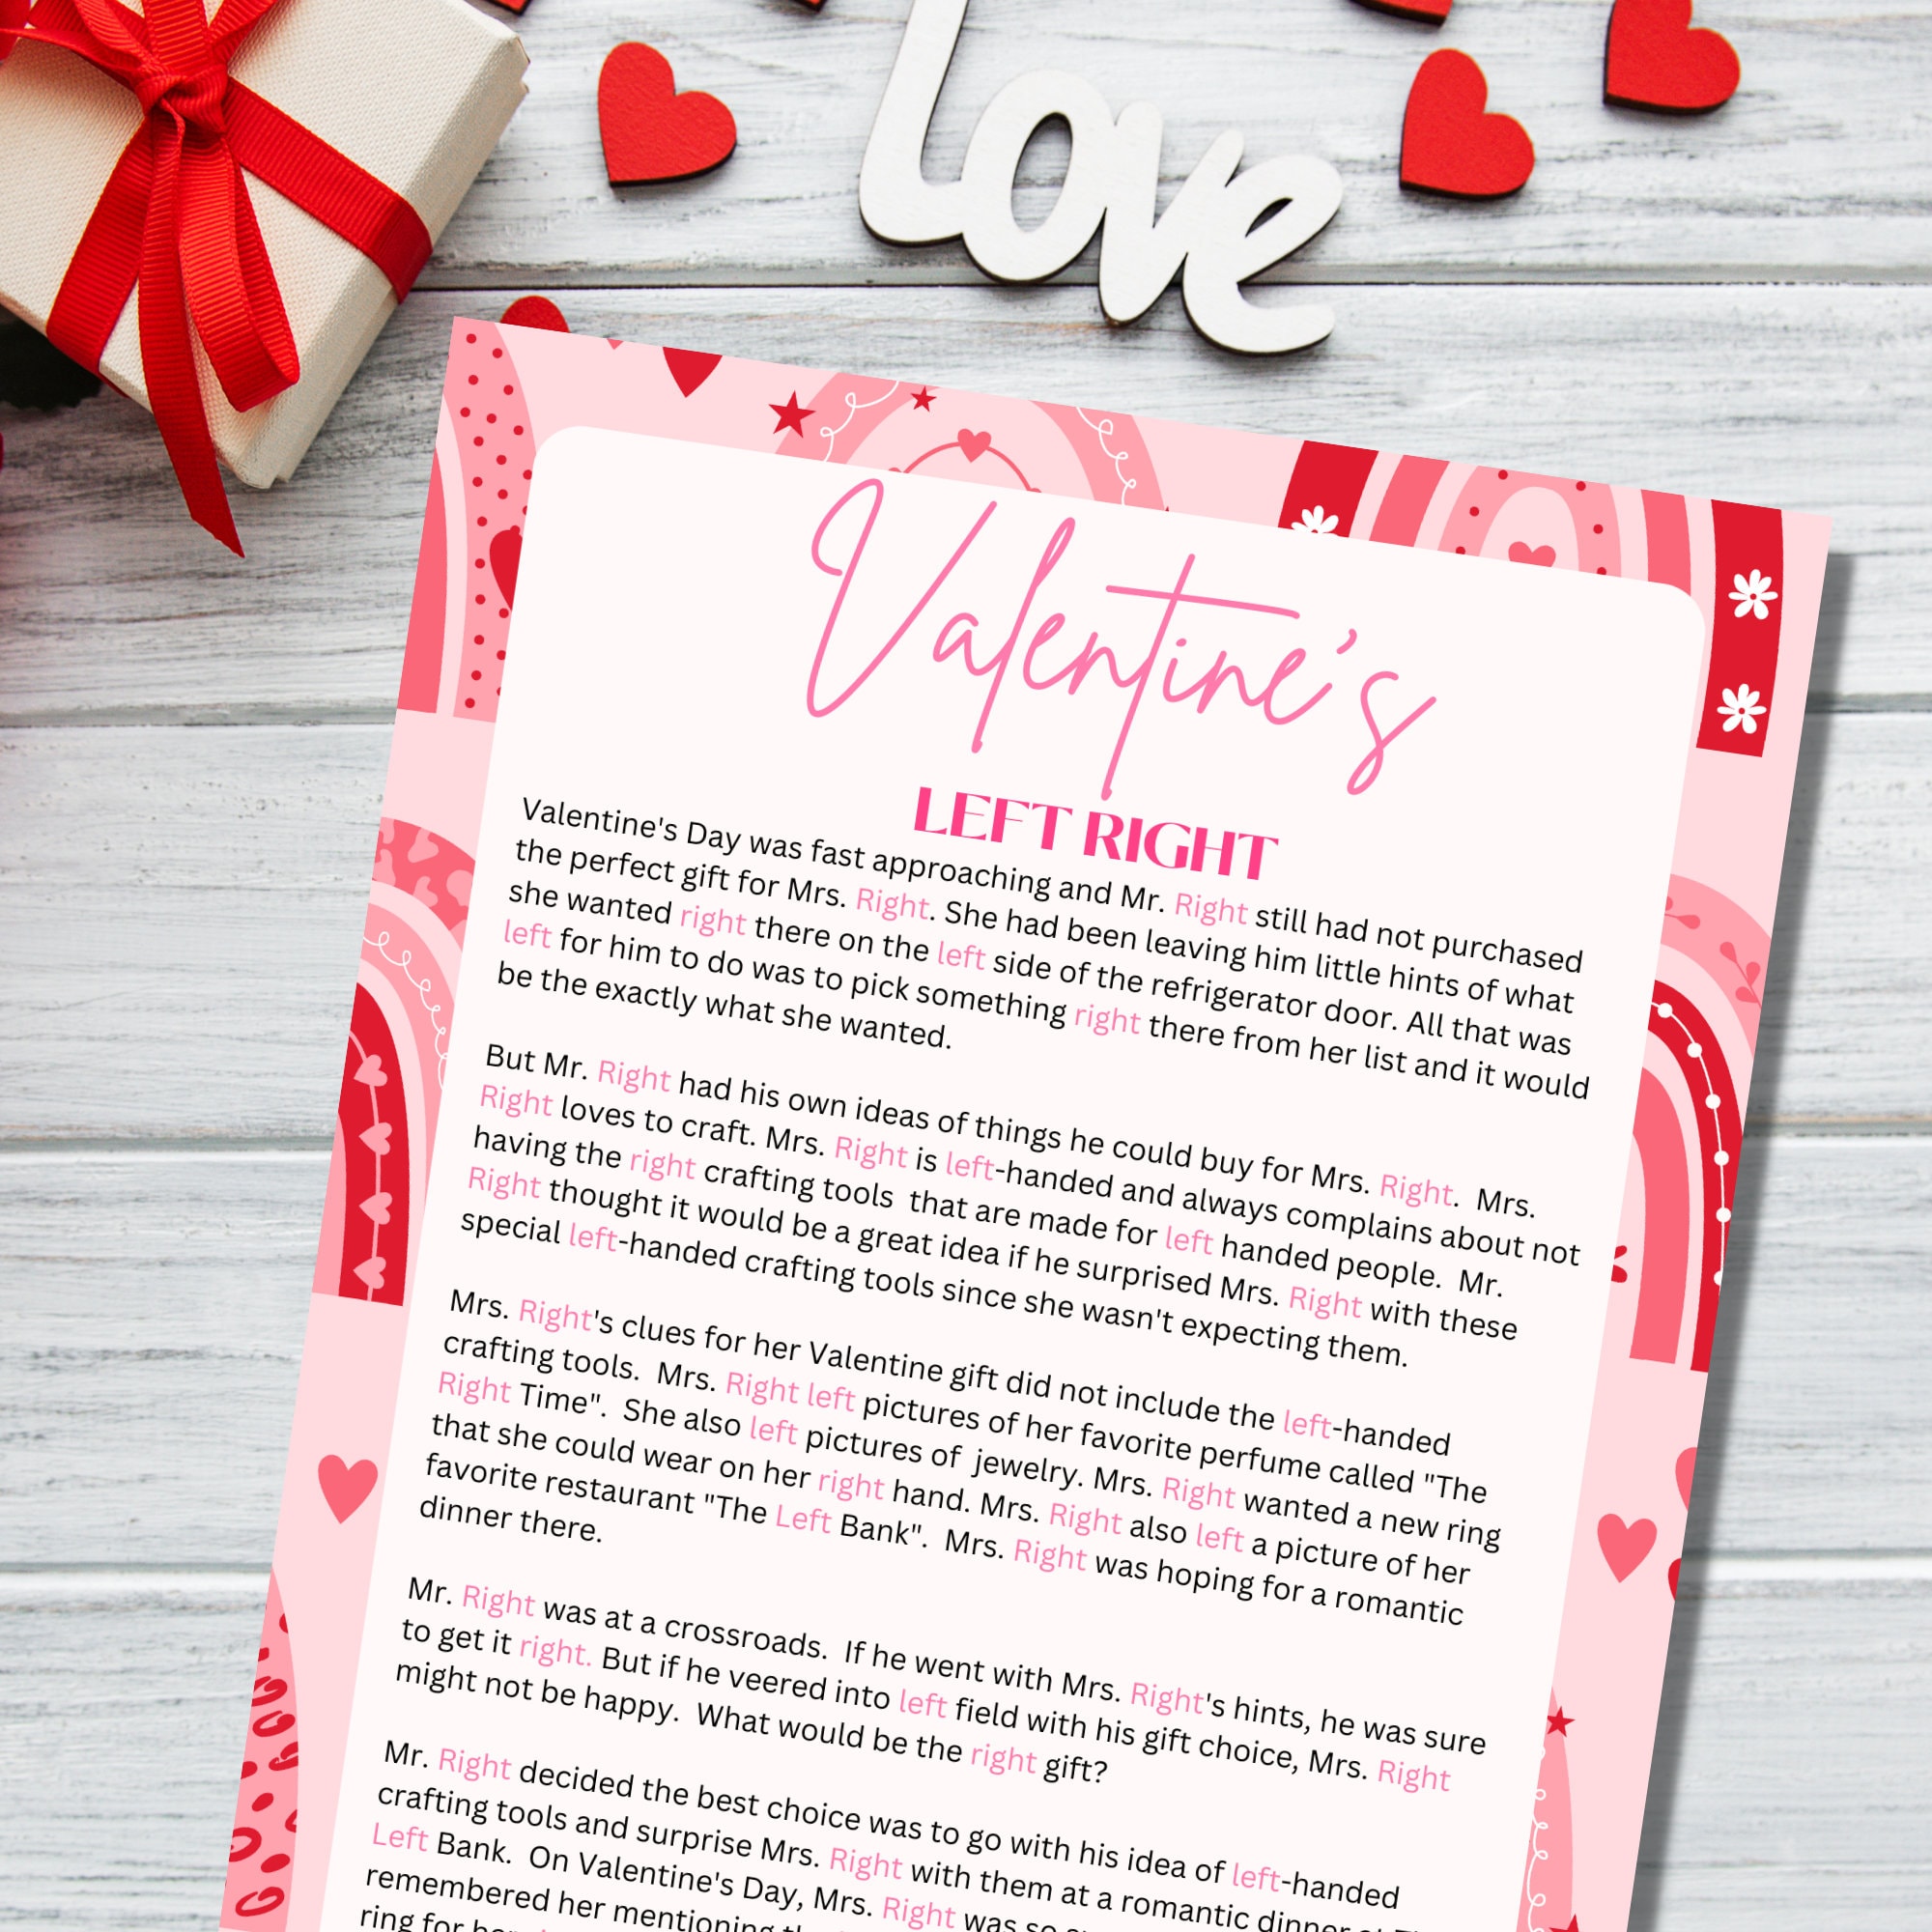 love
Valentine's
LEFT RIGHT
Valentine's Day was fast approaching and Mr. Right still had not purchased
the perfect gift for Mrs. Right. She had been leaving him little hints of what
she wanted right there on the left side of the refrigerator door. All that was
left for him to do was to pick something right there from her list and it would
be the exactly what she wanted.
But Mr. Right had his own ideas of things he could buy for Mrs. Right.  Mrs.
Right loves to craft. Mrs. Right is left-handed and always complains about not
having the right crafting tools  that are made for left handed people.  Mr.
Right thought it would be a great idea if he surprised Mrs. Right with these
special left-handed crafting tools since she wasn't expecting them.
Mrs. Right's clues for her Valentine gift did not include the left-handed
crafting tools.  Mrs. Right left pictures of her favorite perfume called "The
Right Time".  She also left pictures of  jewelry. Mrs. Right wanted a new ring
that she could wear on her right hand. Mrs. Right also left a picture of her
favorite restaurant "The Left Bank".  Mrs. Right was hoping for a romantic
dinner there.
Mr. Right was at a crossroads.  If he went with Mrs. Right's hints, he was sure
to get it right. But if he veered into left field with his gift choice, Mrs. Right
might not be happy.  What would be the right gift?
Mr. Right decided the best choice was to go with his idea of left-handed
crafting tools and surprise Mrs. Right with them at a romantic dinner at
Left Bank.  On Valentine's Day, Mrs. Right was so
remembered her mentioning
ring for her